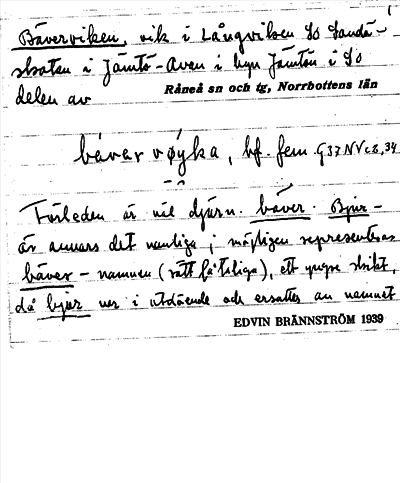 Bäverviken, vik i Långviken SO Sandä-
skatan i Jämtö-Avan i byn Jämtön i SO
delen av Råneå sn och tg, Norrbottens län
bävarvøyka, bf. fem G37NVc2,34
Förleden är väl djurn. bäver. Bjur-
är annars det vanliga; möjligen representeras
bäver-namnen (rätt fåtaliga), ett yngre skikt,
då bjur var i utdöende och ersattes av namnet
EDVIN BRÄNNSTRÖM 1939